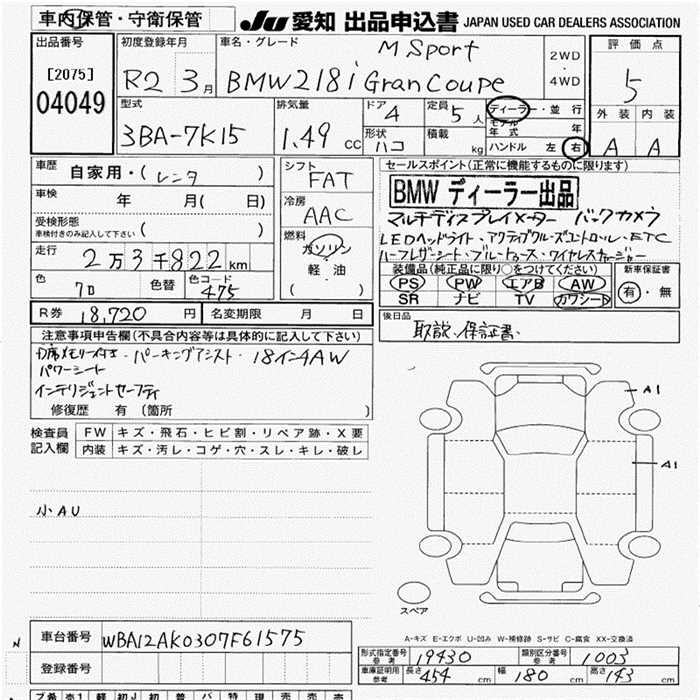 車内保管・守衛保管
JU 愛知 出品申込書 JAPAN USED CAR DEALERS ASSOCIATION
出品番号
[2075]
04049
初度登録年月
R2 3月
車名・グレード
M Sport
BMW218i Gran Coupe
2WD
・
4WD
評価点
5
外装 内装
A A
型式
3BA-7K15
排気量
1.49 cc
ドア 4
形状 ハコ
定員 5人
積載 kg
ディーラー・並行
モデル年式 年
ハンドル 左 右
車歴 自家用・(レンタ )
車検 年 月( 日)
受検形態
車検付きのみ記入して下さい ( )
走行 2万3千822km
色 クロ 色替 色コード 475
シフト FAT
冷房 AAC
燃料 ガソリン
軽油
( )
セールスポイント(正常に機能するものに限ります)
BMW ディーラー出品
マルチディスプレイメーター バックカメラ
LEDヘッドライト・アクティブクルーズコントロール・ETC
ハーフレザーシート・ブルートゥース・ワイヤレスチャージャー
装備品(純正品に限り○をつけてください)
PS PW エアB AW
SR ナビ TV カワシート
新車保証書
有・無
R券 18,720円 名変期限 月 日
後日品
取説・保証書
注意事項申告欄(不具合内容等は具体的に記入して下さい)
D席メモリー付き・パーキングアシスト・18インチAW
パワーシート
インテリジェントセーフティ
修復歴 有(箇所 )
検査員
記入欄
FW キズ・飛石・ヒビ割・リペア跡・X要
内装 キズ・汚レ・コゲ・穴・スレ・キレ・破レ
小AU
A1
A1
スペア
A-キズ E-エクボ U-凹み W-補修跡 S-サビ C-腐食 XX-交換済
N
車台番号 WBA12AK0307F61575
登録番号
形式指定番号
参考
19430
類別区分番号
参考
1003
車庫証明用
参考
長さ 454 cm 幅 180 cm 高さ 143 cm